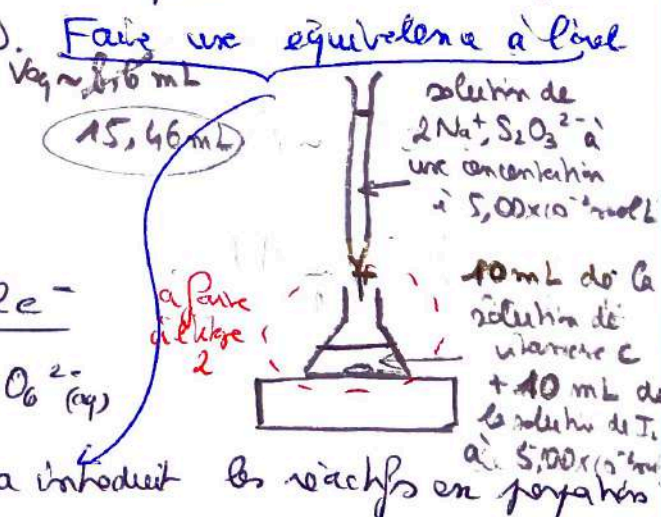 ). Faire une équivalence à l'oral
Veq ~ 6,6 mL
15,46 mL
solution de
2Na⁺, S₂O₃²⁻ à
une concentration
à 5,00x10⁻³ mol L
2e⁻
O₆²⁻(aq)
à faire
2
10 mL de la
solution de
vitamine C
+ 10 mL de
la solution de I₂
à 5,00x10⁻³ mol
a introduit les réactifs en proportions